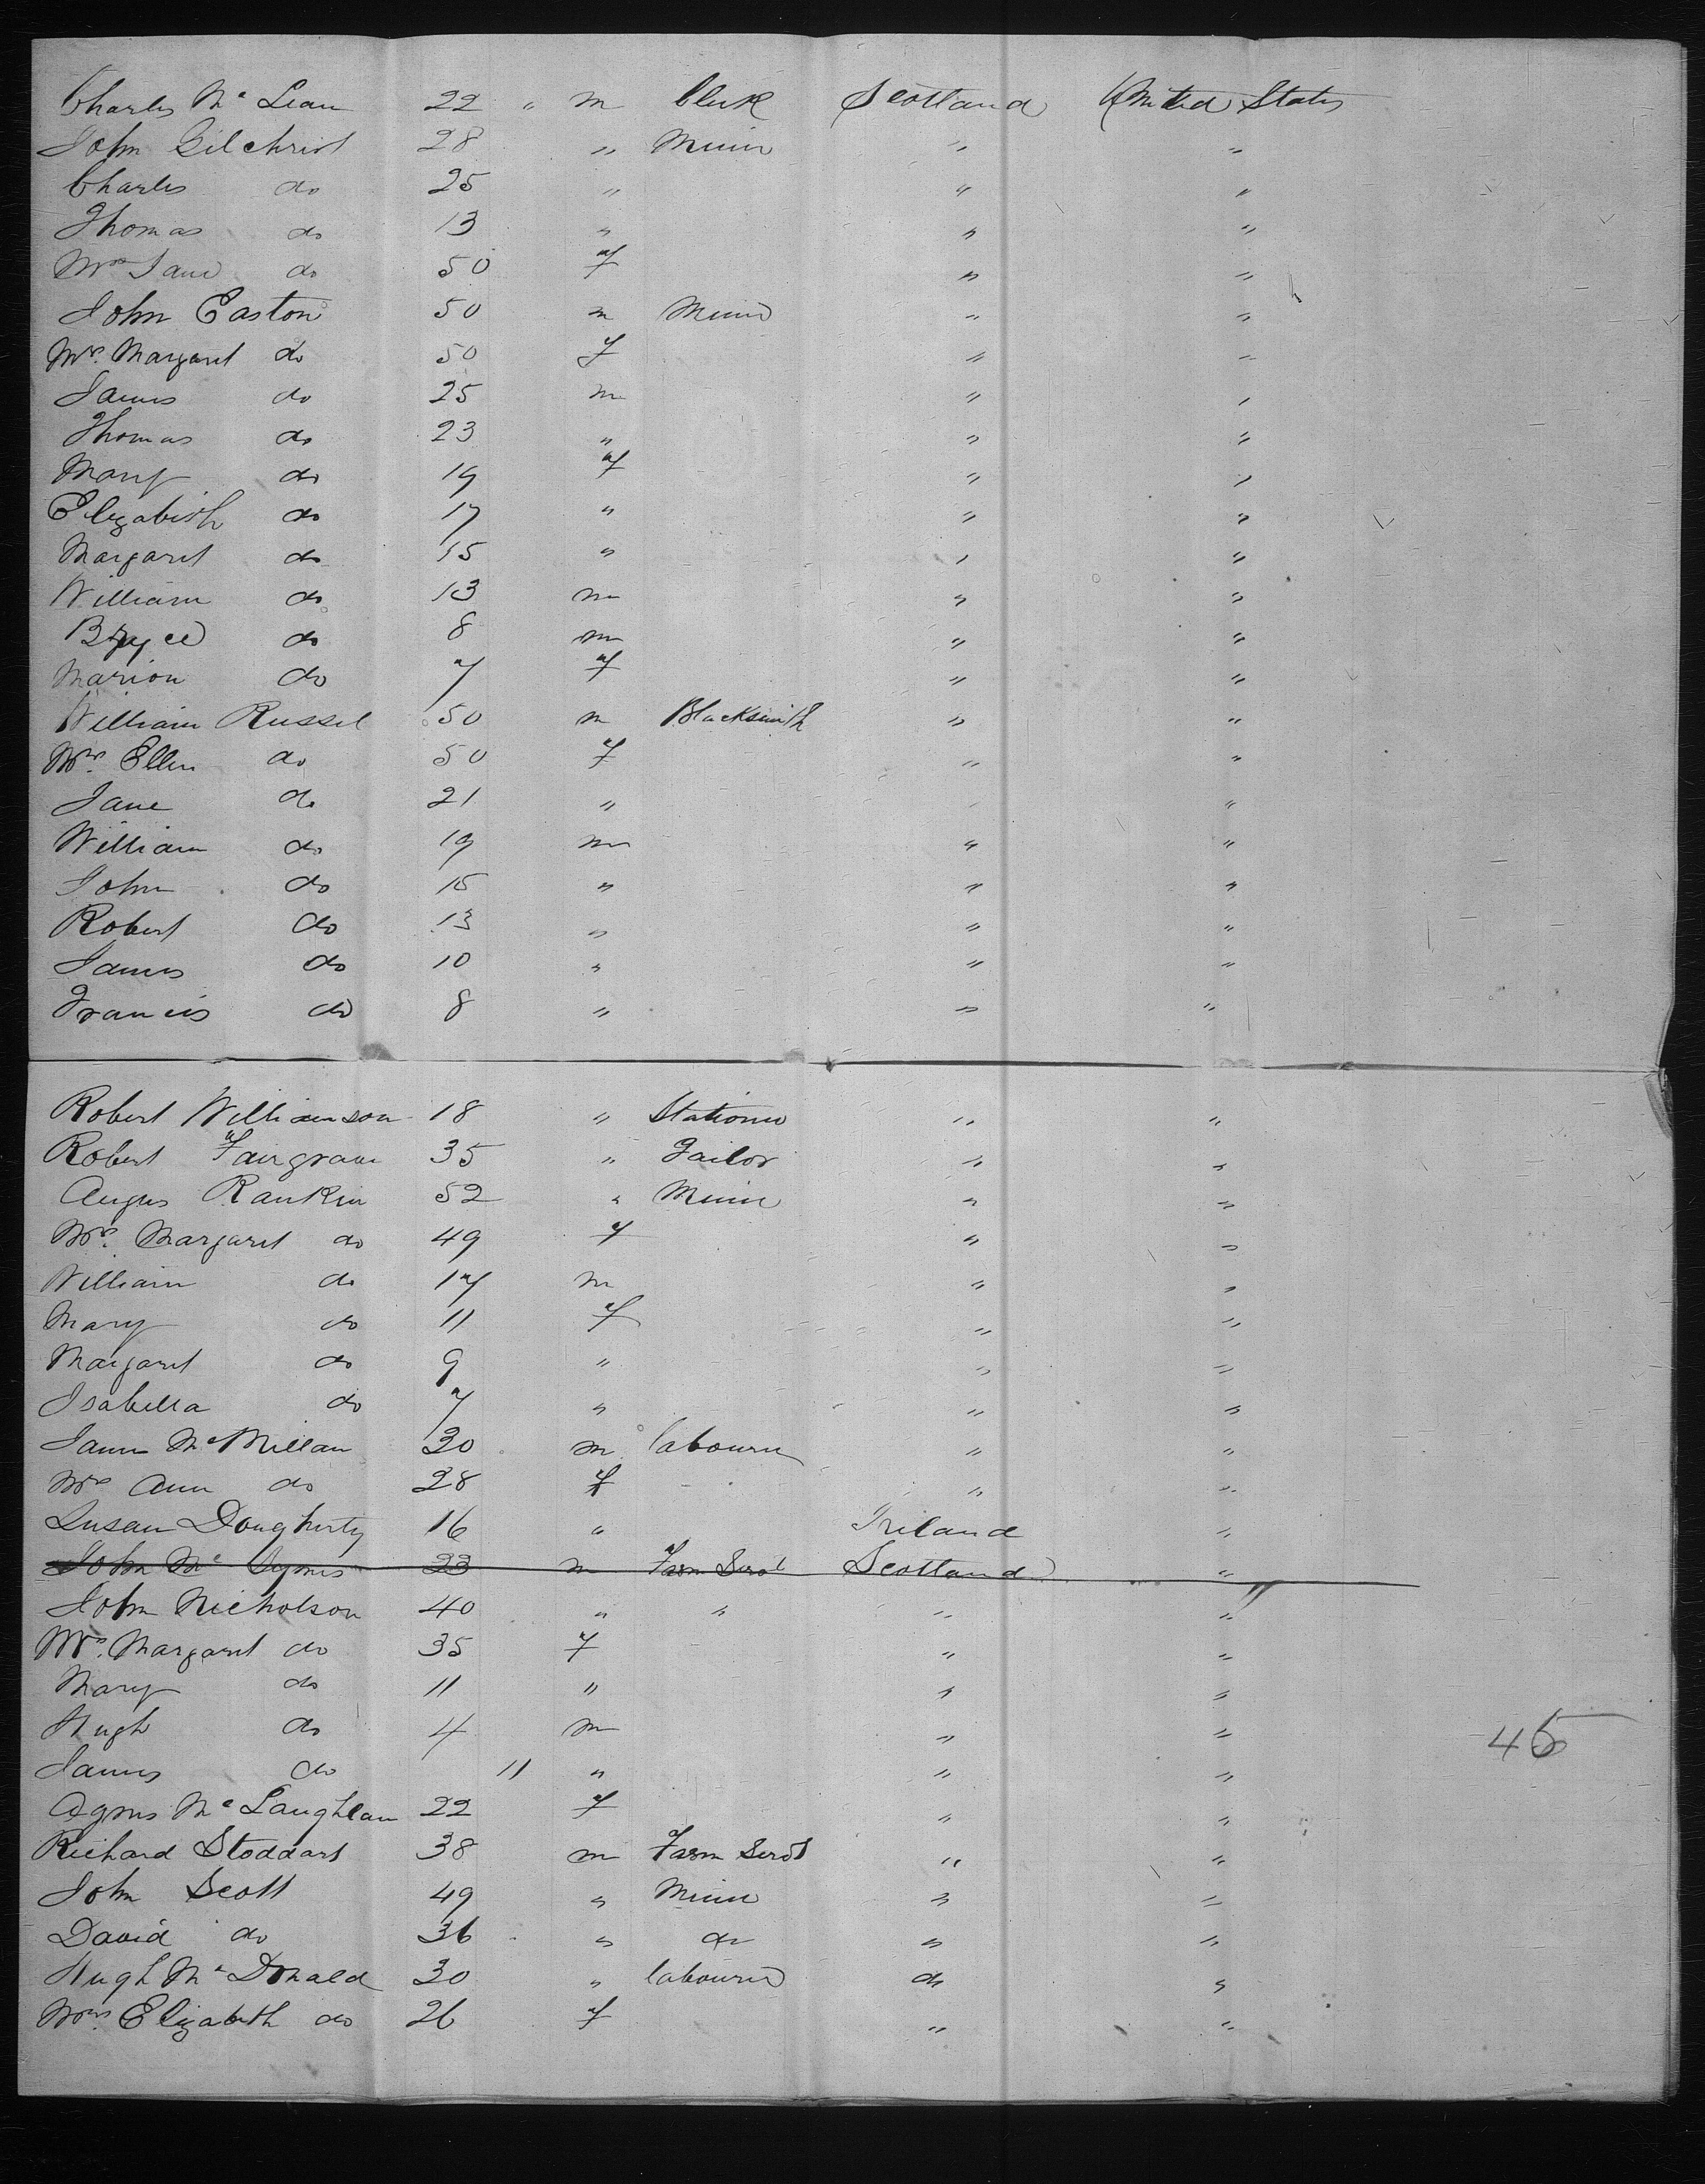 Charles Mc Lean 22 " m Clerk Scotland United States
John Gilchrist 28 " Miner " "
Charles do 25 " " "
Thomas do 13 " " "
Mrs Jane do 50 f " "
John Easton 50 m Miner " "
Mrs. Margaret do 50 f " "
James do 25 m " "
Thomas do 23 " " "
Mary do 19 f " "
Elizabeth do 17 " " "
Margaret do 15 " " "
William do 13 m " "
Bryce do 8 m " "
Marion do 7 f " "
William Russel 50 m Blacksmith " "
Mrs. Ellen do 50 f " "
Jane do 21 " " "
William do 19 m " "
John do 15 " " "
Robert do 13 " " "
James do 10 " " "
Francis do 8 " " "
Robert Williamson 18 " Stationer " "
Robert Fairgrave 35 " Tailor " "
Angus Rankin 52 " Miner " "
Mrs. Margaret do 49 f " "
William do 17 m " "
Mary do 11 f " "
Margaret do 9 " " "
Isabella do 7 " " "
James McMillan 30 m labourer " "
Mrs Ann do 28 f " "
Susan Dougherty 16 " Ireland "
John Mc Symes 23 m Farm Servt Scotland "
John Nicholson 40 " " " "
Mrs. Margaret do 35 f " "
Mary do 11 " " "
Hugh do 4 m " "
James do 11 " " "
Agnes Mc Laughlan 22 f " "
Richard Stoddart 38 m Farm Servt " "
John Scott 49 " Miner " "
David do 36 " do " "
Hugh Mc Donald 30 " labourer do "
Mrs. Elizabeth do 26 f " "
45